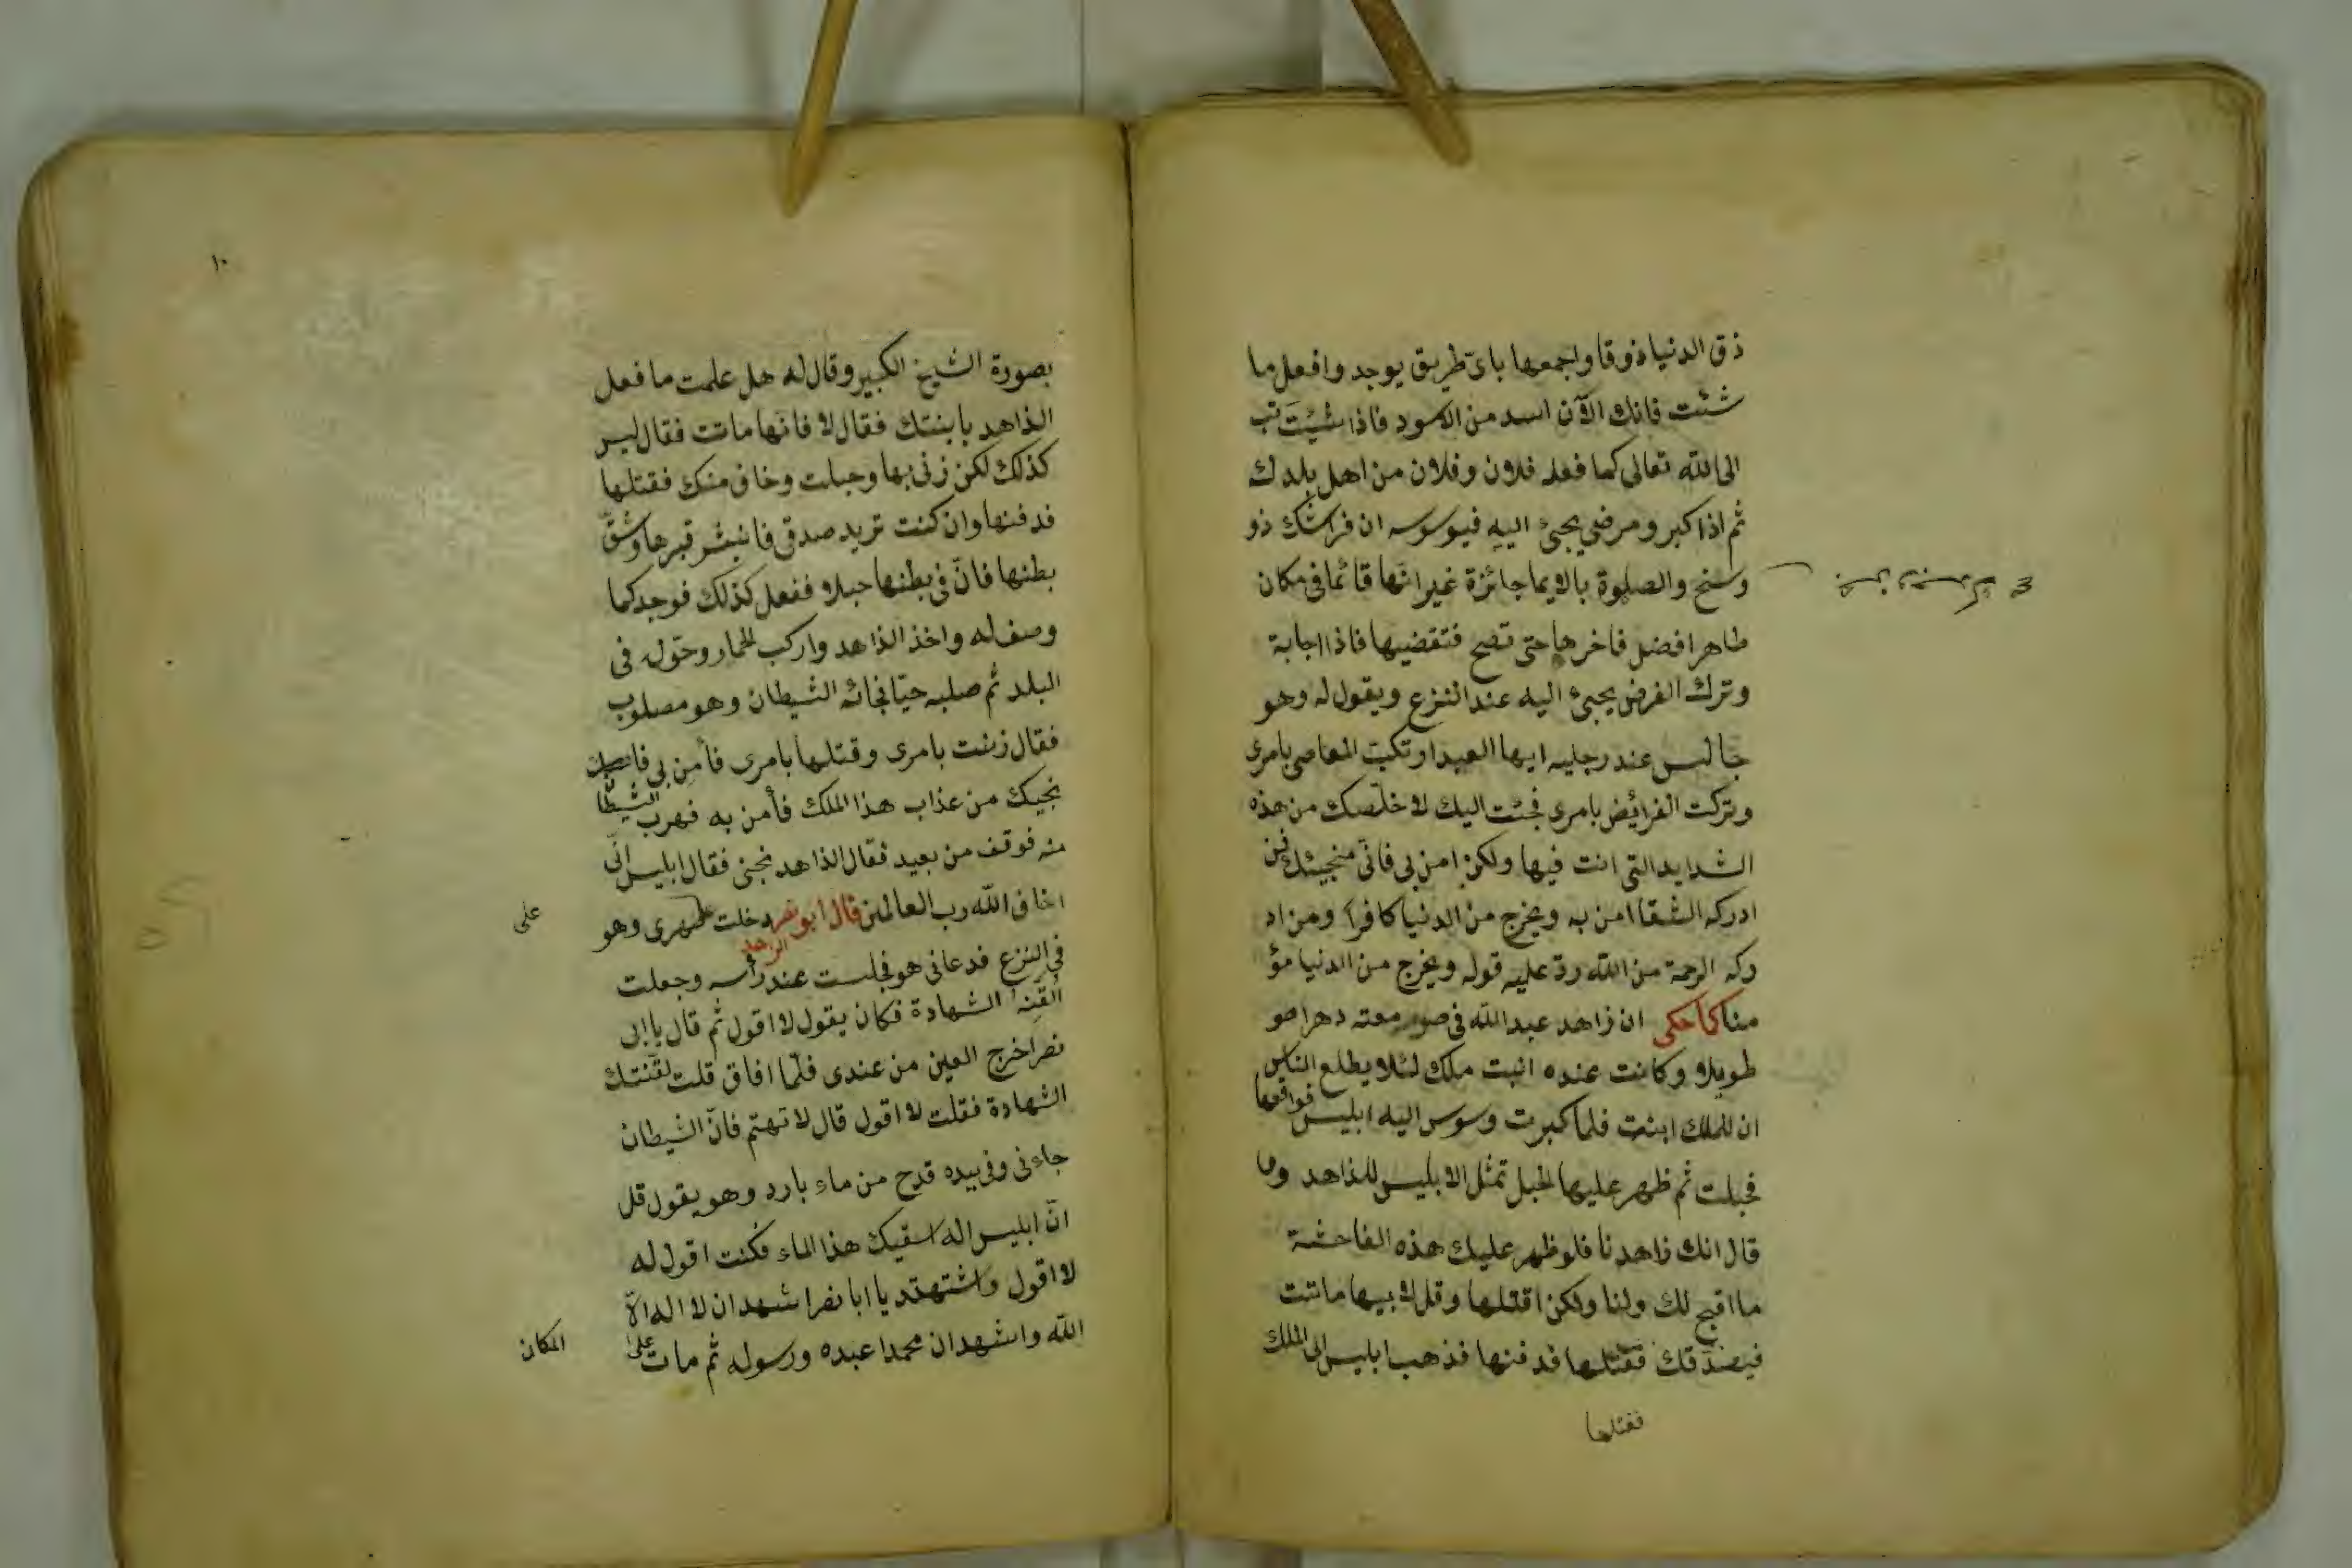 ذق الدنيا ذوقا واجمعها باىّ طريق يوجد وافعل ما
شئت فانك الآن اسد من الاسود فاذا شئت تب
الى الله تعالى كما فعله فلان وفلان من اهل بلدك
ثم اذا كبر ومرض يجئ اليه فيوسوسه ان فراشك ذو
وسخ والصلوة بالايما جائزة غير انّها قائما فى مكان
طاهر افضل فاخرها حتى تصح فتقضيها فاذا اجابة
وترك الفرض يجئ اليه عند النزع ويقول له وهو
جالس عند رجليه ايها العبد ارتكبت المعاصى بامرى
وتركت الفرايض بامرى فجئت اليك لاخلّصك من هذه
الشدايد التى انت فيها ولكن امن بى فانى منجيئك فمن
ادركه الشقا امن به ويخرج من الدنيا كافرا ومن اد
ركه الرحمة من الله ردّ عليه قوله ويخرج من الدنيا مؤ
منا كما حكى ان زاهد عبد الله فى صومعته دهرا
طويلا وكانت عنده ابنت ملك لئلا يطلع الناس
ان للملك ابنت فلما كبرت وسوس اليه ابليس فواقعها
فحبلت ثم ظهر عليها الحبل تمثل الابليس للذاهد وما
قال انك زاهدنا فلو ظهر عليك هذه الفاحشة
ما اقبح لك ولنا ولكن اقتلها وقل لابيها ماتت
فيصدّقك فقتلها فدفنها فذهب ابليس الى الملك
فقتلها
١٠
بصورة الشيخ الكبير وقال له هل علمت ما فعل
الذاهد بابنتك فقال لا فانها ماتت فقال ليس
كذلك لكن زنى بها وحبلت وخاف منك فقتلها
فدفنها وان كنت تريد صدقى فانبش قبرها وشقّ
بطنها فانّ فى بطنها حبلا ففعل كذلك فوجد كما
وصف له واخذ الذاهد واركب الحمار وحوّله فى
البلد ثم صلبه حيّا فجائه الشيطان وهو مصلوب
فقال زنيت بامرى وقتلها بامرى فأمن بى
نجيك من عذاب هذا الملك فأمن به فهرب الشيطان
منه فوقف من بعيد فقال الذاهد نجنى فقال ابليس انّى
اخاف الله رب العالمين قال ابو نصر دخلت على صهرى وهو
على
فى النزع فدعانى هو فجلست عند رأسه وجعلت
القّنه الشهادة فكان يقول لا اقول ثم قال يا ابى
نصر اخرج العين من عندى فلمّا افاق قلت لقّنتك
الشهادة فقلت لا اقول قال لا تهتم فانّ الشيطان
جاءنى وفى بيده قدح من ماء بارد وهو يقول قل
انّ ابليس اله اسقيك هذا الماء فكنت اقول له
لا اقول واشتهد يا ابا نصر اشهد ان لا اله الاّ
الله واشهد ان محمدا عبده ورسوله ثم مات على
المكان